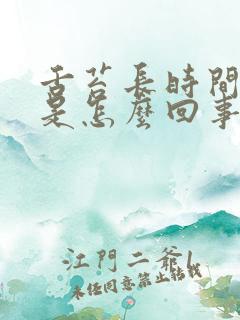 舌苔長時間
是怎麼回事
江門二爺l
未經同意禁止轉載